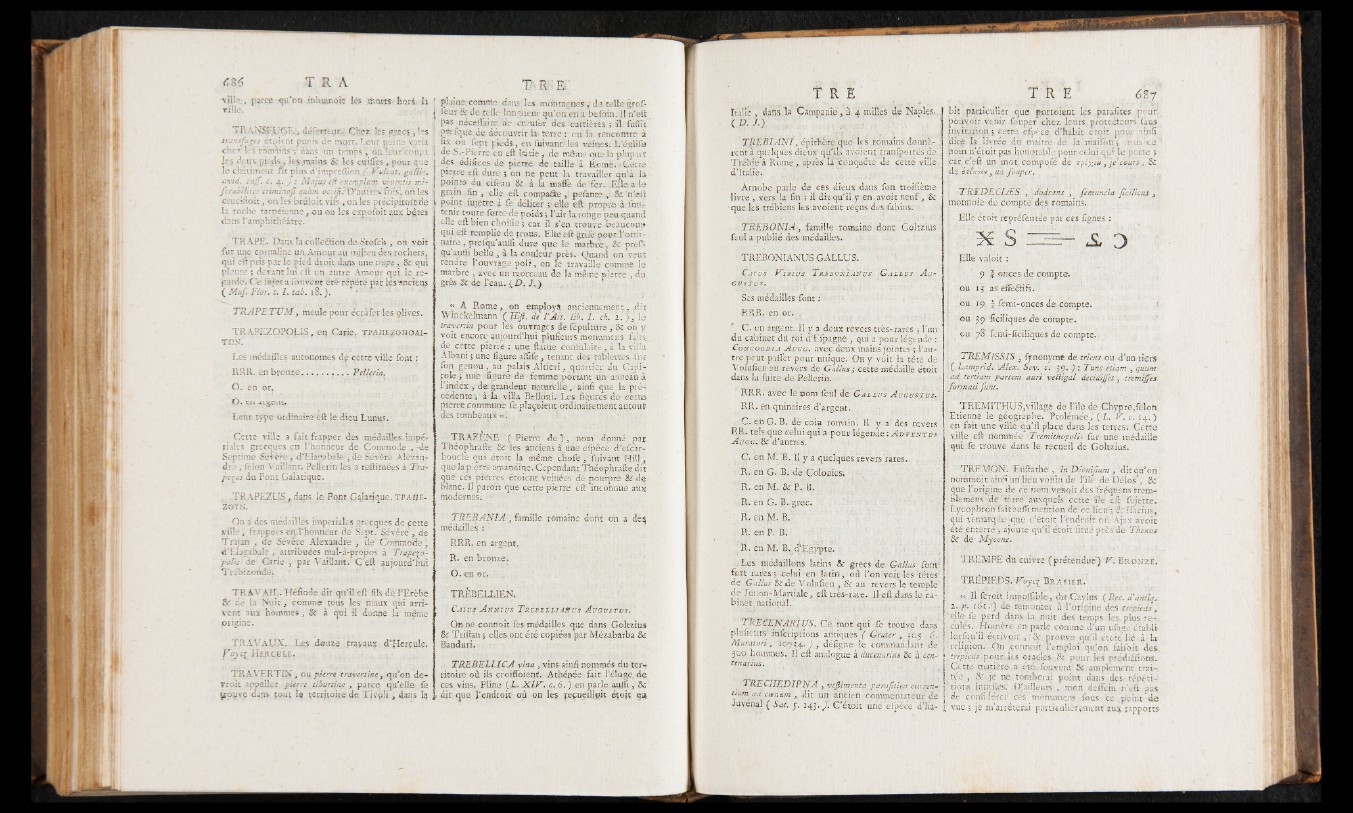 686 T R A
ville, parce qu'on inhumoit les morts hors la
ville.
TRANSFUGE, déserteur. Chez les grecs, les
transfuges étoient punis de mort. Leur peine varia
chez les romains; dans un temps, on leur coupa
les deux pieds, les mains & les cuisses, pour que
le châtiment fît plus d'impression.
crucifioit, on les brûloit vifs, on les précipitoit de
la roche tarpéienne, ou on les exposoit aux bêtes
dans l'amphithéâtre.
TRAPE. Dans la collection de Stosch, on voit
sur une cornaline un Amour au milieu des rochers,
qui est pris par le pied droit dans une trape, & qui
pleure; devant lui est un autre Amour qui le re-
garde. Ce sujet a souvent été répété par les anciens
( Mus. Flor. t. I. tab. 18. ).
TRAPETUM, meule pour écraser les olives.
TRAPEZOPOLIS, en Carie. ΤΡΑΠΕΖΟΠΟΛΙ-
ΤΩΝ.
Les médailles autonomes de cette ville sont :
RRR. en bronze.......... Pellerin.
O. en or.
O. en argent.
Leur type ordinaire est le dieu Lunus.
Cette ville a fait frapper des médailles impé-
riales grecques en l'honneur de Commode, de
Septime Sévère, d'Elagabale, de Sévère Alexan-
dre, selon Vaillant. Pellerin les a restituées à Tra-
pezus du Pont Galatique.
TRAPEZUS, dans le Pont Galatique. ΤΡΑΠΕ-
ΖΟΥΣ.
On a des médailles impériales grecques de cette
ville, frappées en l'honneur de Sept. Sévère, de
Trajan, de Sévère Alexandre, de Commode,
d'Elagabale, attribuées mal-à-propos à Trapezo-
polis de Carie, par Vaillant. C'est aujourd'hui
Trébizonde.
TRAVAIL. Hésiode dit qu'il est fils de l'Erèbe
& de la Nuit, comme tous les maux qui arri-
vent aux hommes, & à qui il donne la même
origine.
TRAVAUX. Les douze travaux d'Hercule.
Voyez HERCULE.
TRAVERTIN, ou pierre travertine, qu'on de-
vroit appeller pierre tiburtine, parce qu'elle se
trouve dans tout le territoire de Tivoli, dans la
T R E
plaine comme dans les montagnes, de telle gros-
seur & de telle longueur qu'on en a besoin. Il n'est
pas nécessaire de creuser des carrières; il suffit
presque de découvrir la terre: on la rencontre à
six ou sept pieds, en suivant les veines. L'église
de S.-Pierre en est bâtie, de même que la plupart
des édifices de pierre de taille à Rome. Cette
pierre est dure; on ne peut la travailler qu'à la
pointe du ciseau & à la masse de fer. Elle a le
grain fin, elle est compacte, pesante, & n'est
point sujette à se déliter; elle est propre à sou-
tenir toute sorte de poids; l'air la ronge peu quand
elle est bien choisie; car il s'en trouve beaucoup
qui est remplie de trous. Elle est grise pour l'ordi-
naire, presqu'aussi dure que le marbre, & pres-
qu'aussi belle, à la couleur près. Quand on veut
rendre l'ouvrage poli, on le travaille comme le
marbre, avec un morceau de la même pierre, du
grès & de l'eau. (D. J.)
« A Rome, on employa anciennement, dit
Winckelmann ( Hist. de l'Art. lib. I. ch. 2. ), le
travertin pour les ouvrages de sépulture, & on y
voit encore aujourd'hui plusieurs monumens faits
de cette pierre: une statue consulaire, à la villa
Albani; une figure assise, tenant des tablettes sur
son genou, au palais Altieri, quartier du Capi-
tole; une figure de femme portant un anneau à
l'index, de grandeur naturelle, ainsi que la pré-
cédente, à la villa Belloni. Les figures de cette
pierre commune se plaçoient ordinairement autour
des tombeaux ».
TRAZÈNE ( Pierre de ), nom donné par
Théophraste & les anciens à une espèce d'escar-
boucle qui étoit la même chose, suivant Hill,
que la pierre amandine. Cependant Théophraste dit
que ces pierres étoient veinées de pourpre & de
blanc. Il paroît que cette pierre est inconnue aux
modernes.
TREBANIA, famille romaine dont on a des
médailles :
RRR. en argent.
R. en bronze.
O. en or.
TRÉBELLIEN.
CAIUS ANNIUS TREBELLIANUS AUGUSTUS.
On ne connoît ses médailles que dans Goltzius
& Tristan; elles ont été copiées par Mézabarba &
Banduri.
TREBELLICA vina, vins ainsi nommés du ter-
ritoire où ils croissoient. Athénée fait l'éloge de
ces vins. Pline ( L. XIV. c. 6. ) en parle aussi, &
dit que l'endroit où on les recueilloit étoit en
T R E
Italie, dans la Campanie, à 4 milles de Naples.
( D. J.)
TREBIANI, épithète que les romains donnè-
rent à quelques dieux qu'ils avoient transportés de
Trébie à Rome, après la conquête de cette ville
d'Italie.
Arnobe parle de ces dieux dans son troisième
livre, vers la fin; il dit qu'il y en avoit neuf, &
que les trébiens les avoient reçus des sabins.
TREBONIA, famille romaine dont Goltzius
seul a publié des médailles.
TREBONIANUS GALLUS.
CAIUS VIBIUS TREBONIANUS GALLUS AU-
GUSTUS.
Ses médailles sont :
RRR. en or.
C. en argent. Il y a deux revers très-rares; l'un
du cabinet du roi d'Espagne, qui a pour légende :
CONCORDIA AUGG. avec deux mains jointes; l'au-
tre peut passer pour unique. On y voit la tête de
Volusien au revers de Gallus; cette médaille étoit
dans la suite de Pellerin.
RRR. avec le nom seul de GALLUS AUGUSTUS.
RR. en quinaires d'argent.
C. en G. B. de coin romain. Il y a des revers
RR. tels que celui qui a pour légende : ADVENTUS
AUGG. & d'autres.
C. en M. B. Il y a quelques revers rares.
R. en G. B. de Colonies.
R. en M. & P. B.
R. en G. B. grec.
R. en M. B.
R. en P. B.
R. en M. B. d'Egypte.
Les médaillons latins & grecs de Gallus sont
fort rares; celui en latin, où l'on voit les têtes
de Gallus & de Volusien, & au revers le temple
de Junon-Martiale, est très-rare. Il est dans le ca-
binet national.
TRECENARIUS. Ce mot qui se trouve dans
plusieurs inscriptions antiques ( Gruter,
Muratori, ), désigne le commandant de
300 hommes. Il est analogue à ducenarius & à cen-
tenarius.
TRECHEDIPNA, vestimenta parasitica curren-
tium ad cœnam, dit un ancien commentateur de
Juvenal ( Sat. 3. 143. ). C'étoit une espèce d'ha-
T R E 687
bit particulier que portoient les parasites pour
pouvoir venir souper chez leurs protecteurs sans
invitation; cette espèce d'habit étoit pour ainsi
dire la livrée du maître de la maison; mais ce
nom n'étoit pas honorable pour celui qui le porte;
car c'est un mot composé de τρέχω, je cours, &
de δεῖπνον, un souper.
TREDECLES, dodrans, semuncia sicilicus,
monnoie de compte des romains.
Elle étoit représentée par ces signes :
X S
Elle valoit :
9 ¾ onces de compte.
ou 13 as effectifs.
ou 19 ½ semi-onces de compte.
ou 39 siciliques de compte.
ou 78 semi-siciliques de compte.
TREMISSIS, synonyme de triens ou d'un tiers
( Lamprid. Alex. Sev. c. 39. ): Tunc etiam, quum
ad tertiam partem auri vestigal decidisset, tremisses
formati sunt.
TREMITHUS, village de l'île de Chypre, selon
Etienne le géographe. Ptolémée, ( L. V. c. 14. )
en fait une ville qu'il place dans les terres. Cette
ville est nommée Tremithopolis sur une médaille
qui se trouve dans le recueil de Goltzius.
TREMON. Eustathe, in Dionysium, dit qu'on
nommoit ainsi un lieu voisin de l'île de Délos, &
que l'origine de ce nom venoit des fréquens trem-
blemens de terre auxquels cette île est sujette.
Lycophron fait aussi mention de ce lieu; & Isacius,
qui remarque que c'étoit l'endroit où Ajax avoit
été enterré, ajoute qu'il étoit situé près de Thenos
& de Mycone.
TREMPE du cuivre (prétendue) V. BRONZE.
TRÉPIEDS. Voyez BRASIER.
« Il seroit impossible, dit Caylus ( Rec. d'antiq.
2. p. 161.) de remonter à l'origine des trépieds,
elle se perd dans la nuit des temps les plus re-
culés. Homère en parle comme d'un usage établi
lorsqu'il écrivoit, & prouve qu'il étoit lié à la
religion. On connoît l'emploi qu'on faisoit des
trépieds pour les oracles & pour les prédictions.
Cette matière a été souvent & amplement trai-
tée, & je ne tomberai point dans des répéti-
tions inutiles. D'ailleurs, mon dessein n'est pas
de considérer ces monumens sous ce point de
vue; je m'arrêterai particulièrement aux rapports